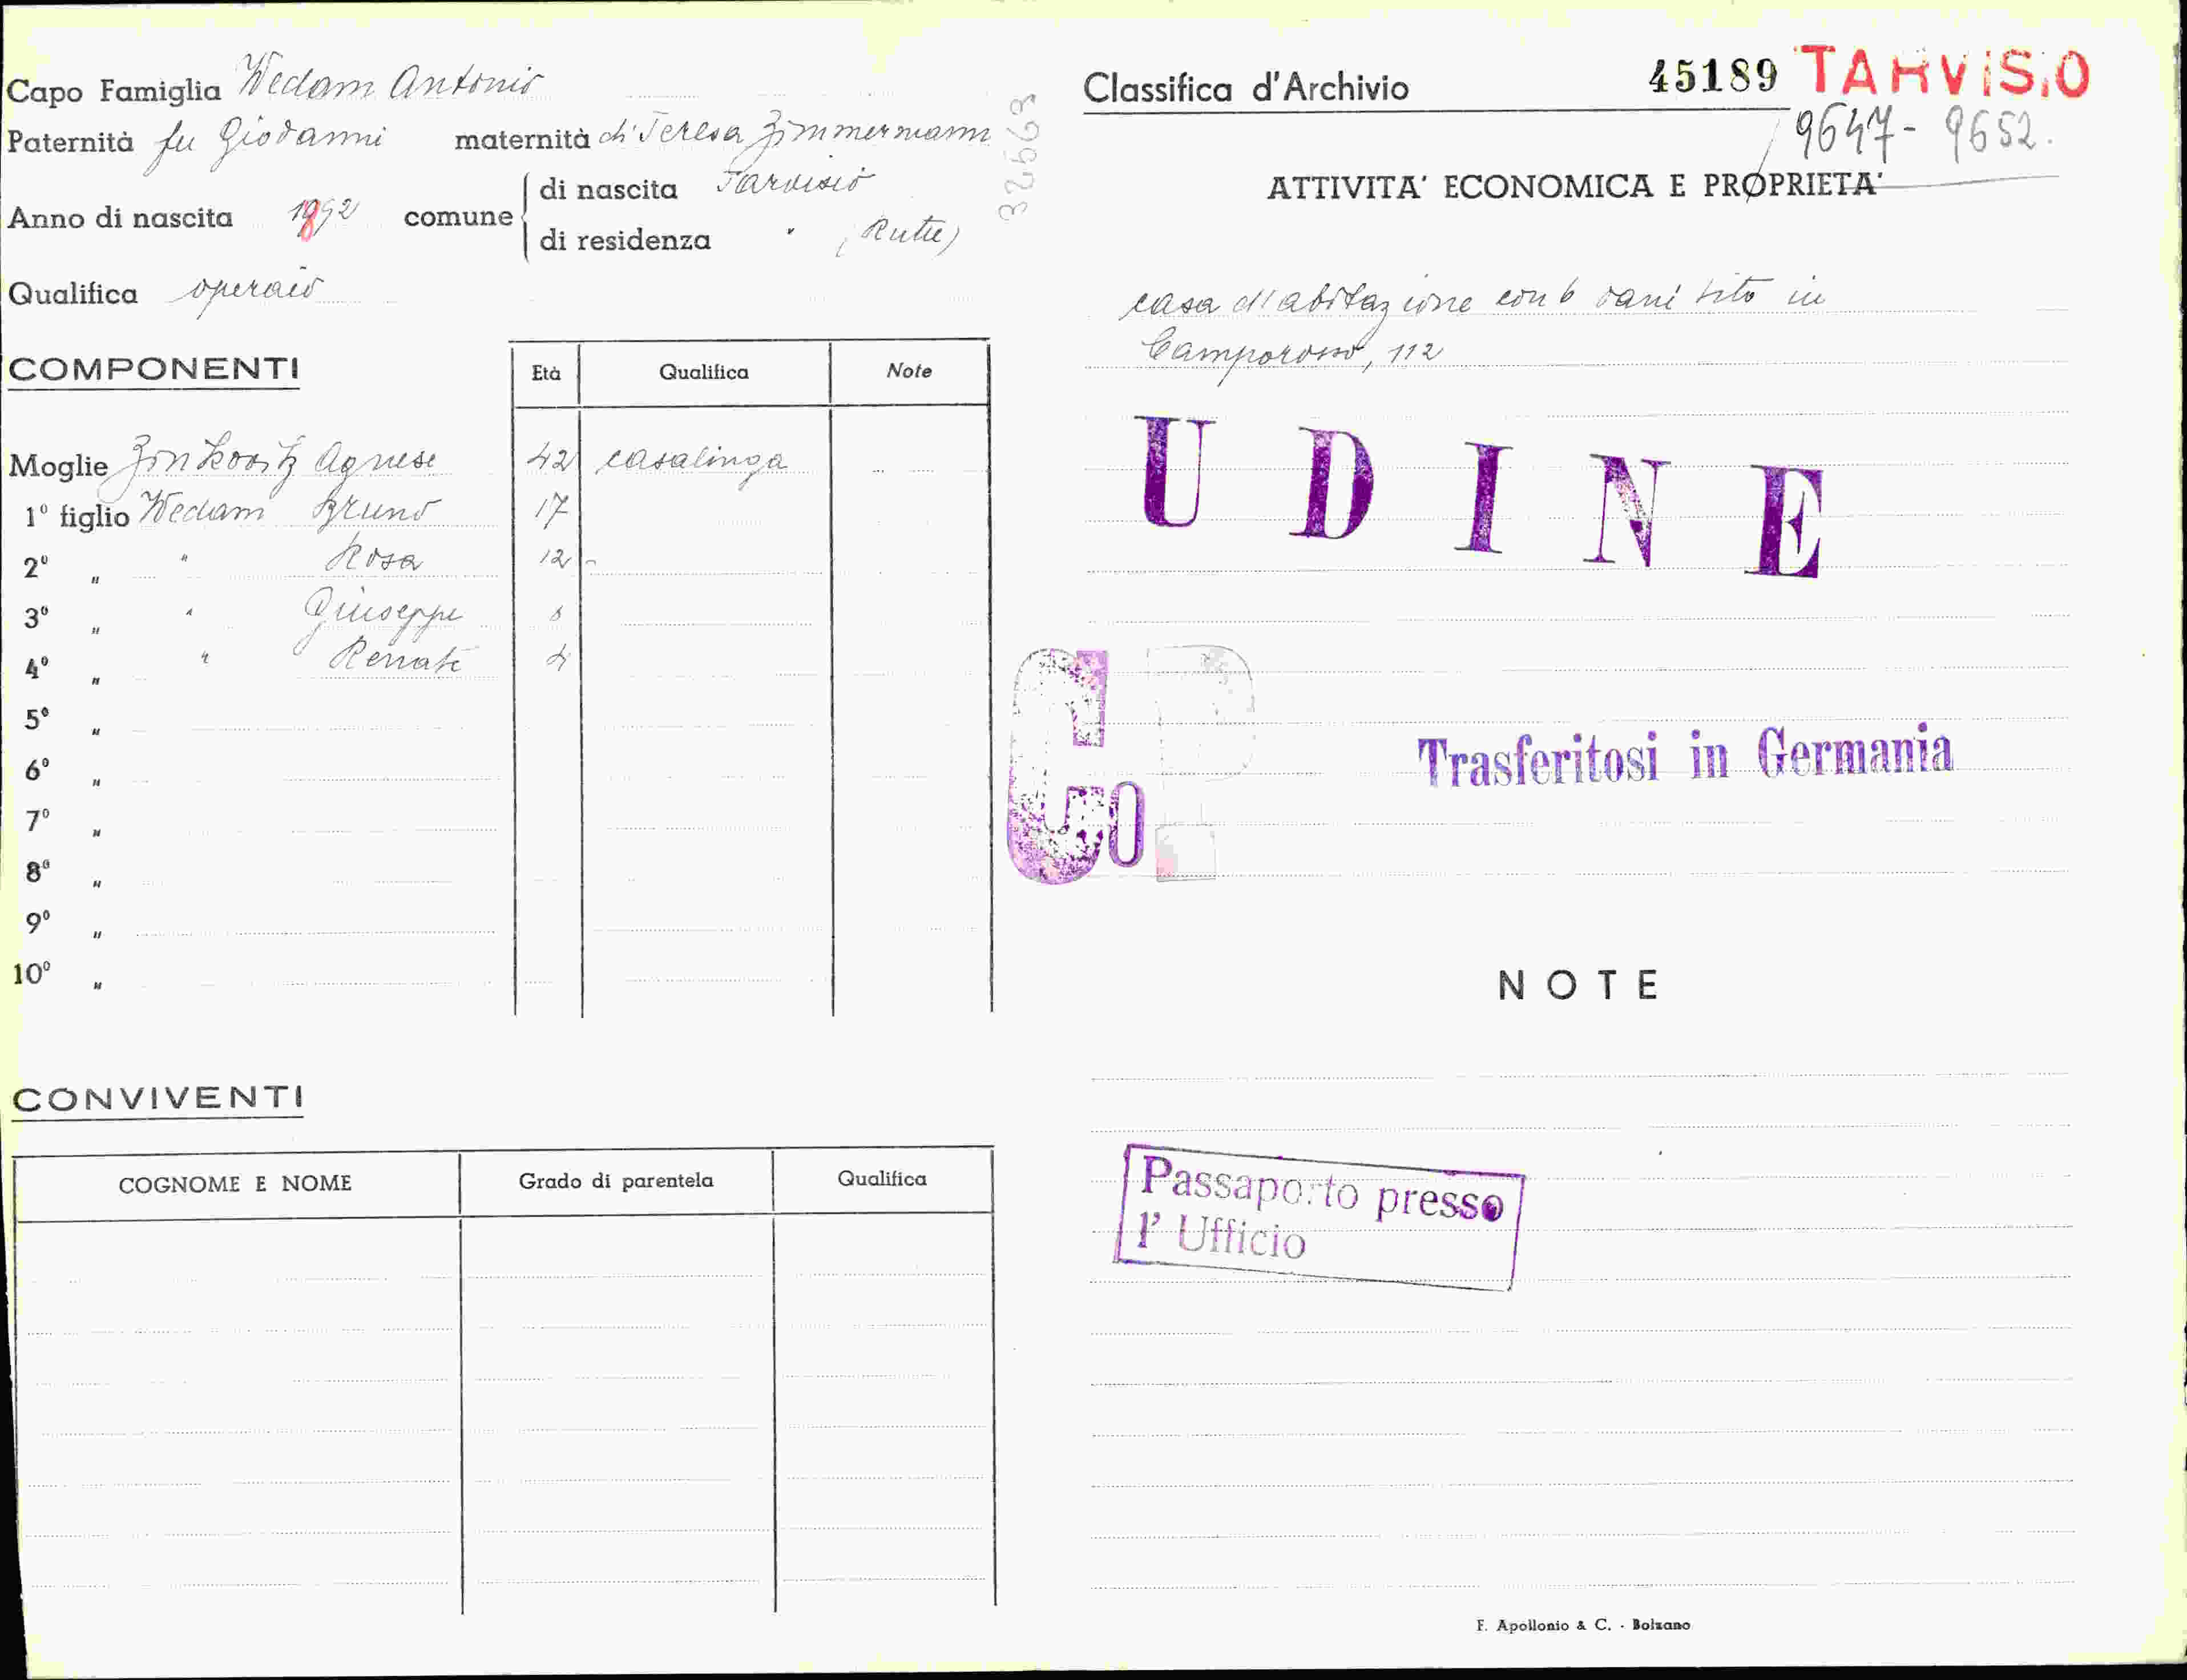 Capo Famiglia Wedam Antonio
Paternità fu Giovanni maternità di Teresa Zimmermann
Anno di nascita 1892 comune
di nascita Tarvisio
di residenza " (Rutte)
Qualifica operaio
32563
COMPONENTI
Età Qualifica Note
Moglie Zinkovitz Agnese 42 casalinga
1° figlio Wedam Bruno 17
2° " " Rosa 12
3° " " Giuseppe
4° " " Renate 4
5° "
6° "
7° "
8° "
9° "
10° "
CONVIVENTI
COGNOME E NOME Grado di parentela Qualifica
Classifica d'Archivio 45189 TARViSiO
9647 - 9652.
ATTIVITA' ECONOMICA E PROPRIETA'
casa d'abitazione con 6 vani sito in
Camporosso, 112
UDINE
Trasferitosi in Germania
NOTE
Passaporto presso
l' Ufficio
F. Apollonio & C. - Bolzano